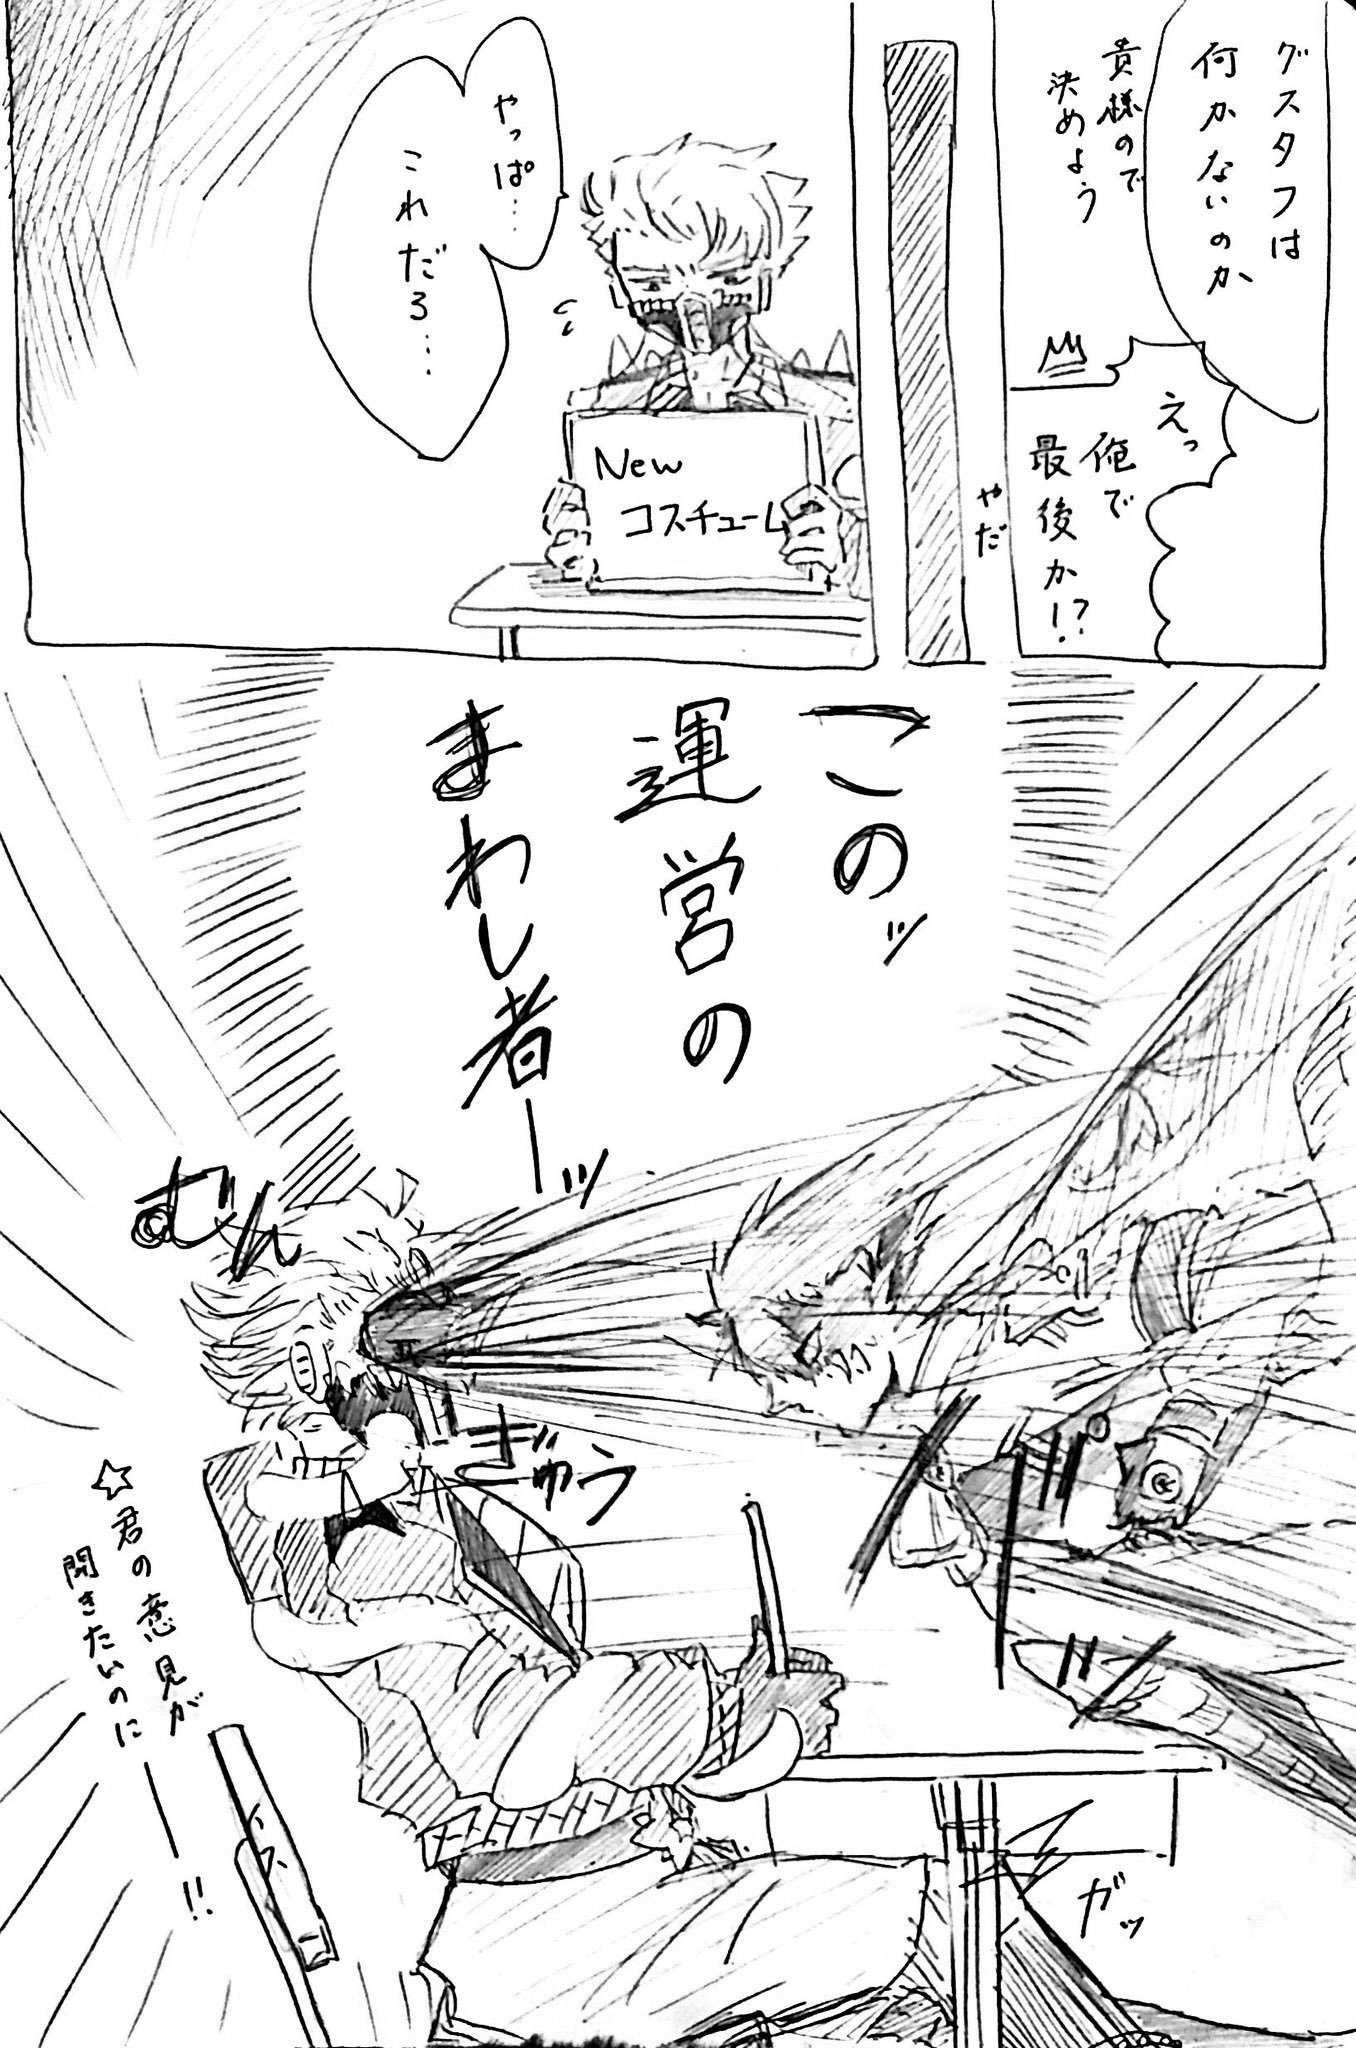 グスタフは
何かないのか
貴様ので
決めよう
えっ
俺で
最後か!?
やだ
やっぱ…
これだろ…
New
コスチューム
このッ
運営の
まわし者ーッ
むん
ぎゅう
バ
バ
☆君の意見が
聞きたいのに
ー!!
ガッ